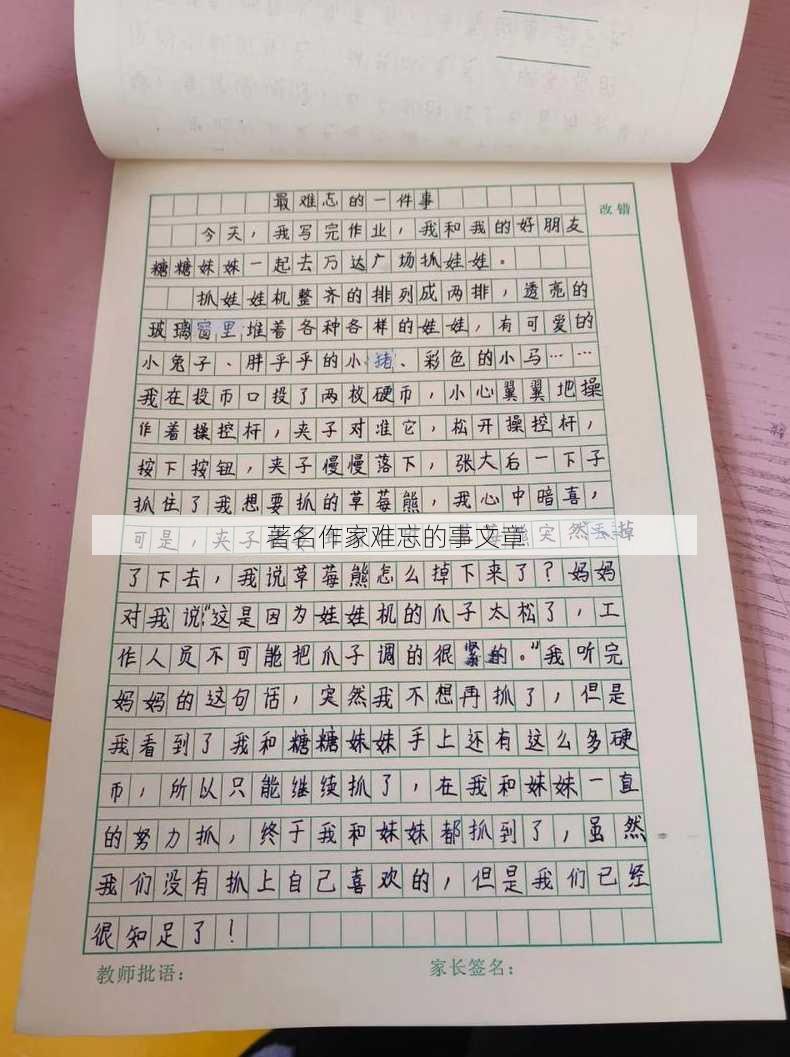 最难忘的一件事
改错
今天，我写完作业，我和我的好朋友
糖糖妹妹一起去万达广场抓娃娃。
抓娃娃机整齐的排列成两排，透亮的
玻璃窗里堆着各种各样的娃娃，有可爱的
小兔子、胖乎乎的小猪、彩色的小马……
我在投币口投了两枚硬币，小心翼翼地操
作着操控杆，夹子对准它，松开操控杆，
按下按钮，夹子慢慢落下，张大后一下子
抓住了我想要抓的草莓熊，我心中暗喜，
可是，夹子 突然丢掉
著名作家难忘的事文章
了下去，我说草莓熊怎么掉下来了？妈妈
对我说“这是因为娃娃机的爪子太松了，工
作人员不可能把爪子调的很紧的。”我听完
妈妈的这句话，突然我不想再抓了，但是
我看到了我和糖糖妹妹手上还有这么多硬
币，所以只能继续抓了，在我和妹妹一直
的努力抓，终于我和妹妹都抓到了，虽然
我们没有抓上自己喜欢的，但是我们已经
很知足了！
教师批语：
家长签名：